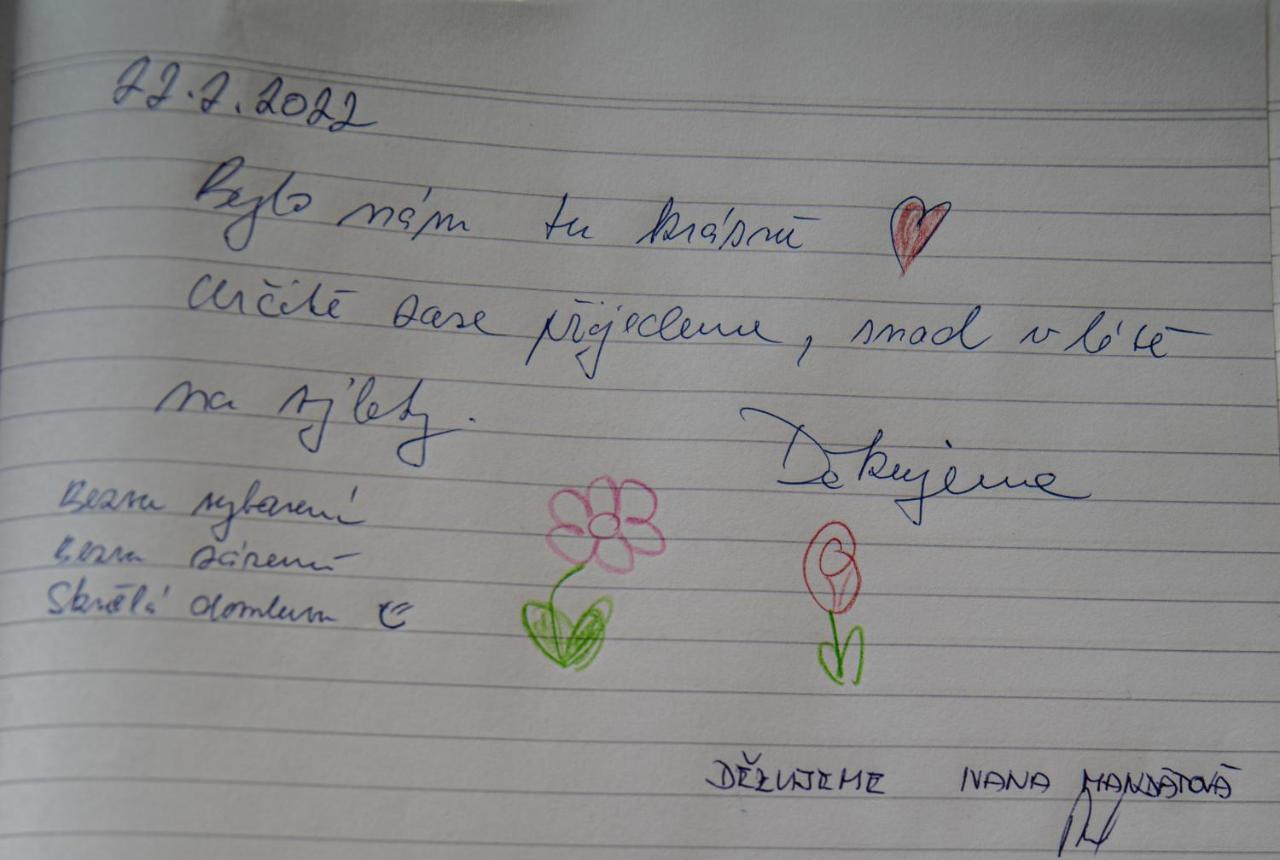 22.2.2022
Bylo nám tu krásně
Určitě zase přijedeme, snad v létě
na výlety.
Děkujeme
Bezva vybavení
Bezva zázemí
Skvělá domluva
DĚKUJEME IVANA MANDÁTOVÁ